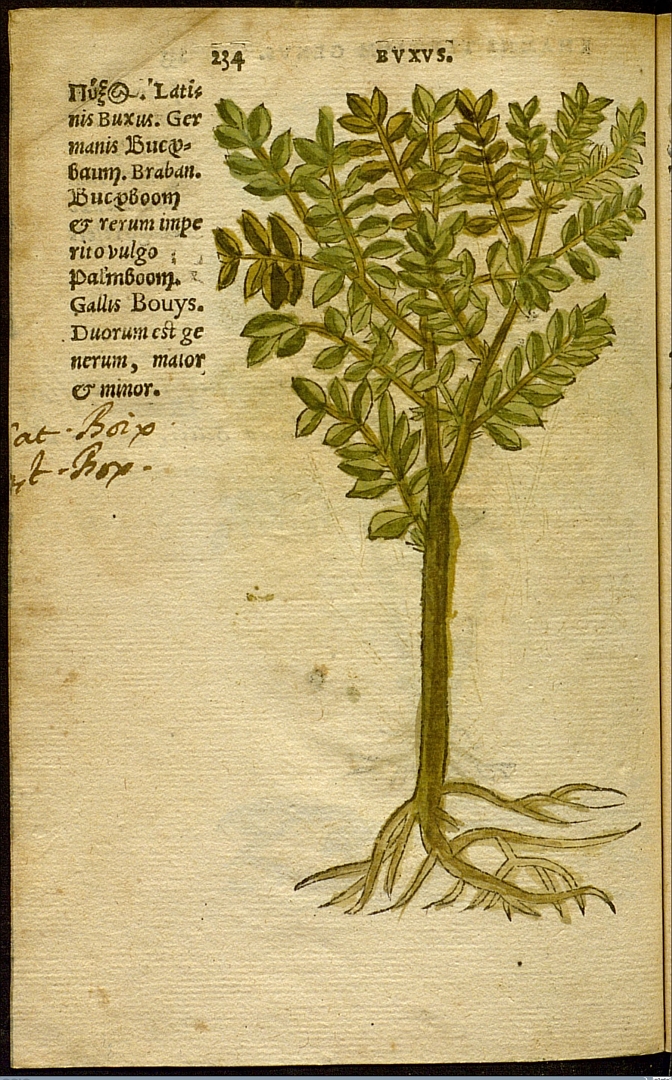 234 BVXVS.
Πύξος. Lati-
nis Buxus. Ger
manis Bucxs-
baum. Braban.
Bucxboom
& rerum impe
rito vulgo
Palmboom.
Gallis Bouys.
Duorum est ge
nerum, maior
& minor.
at - Boix
t - Box -